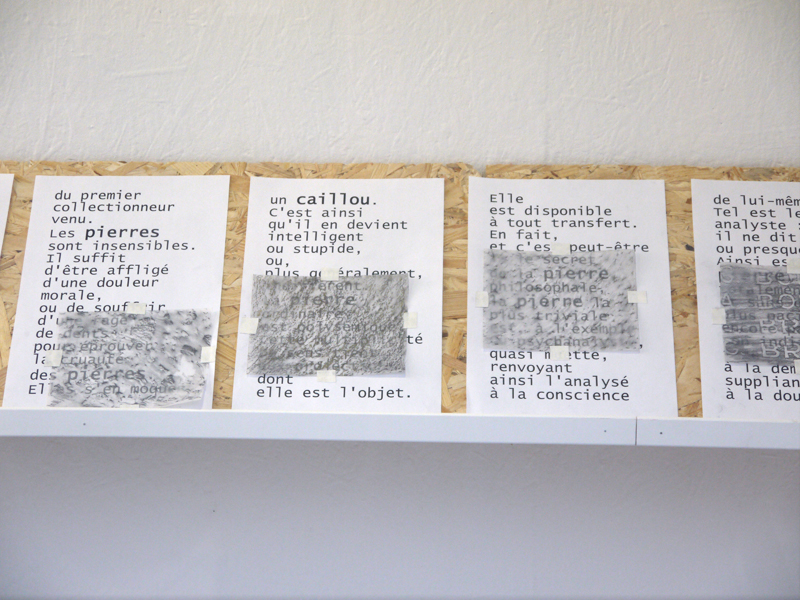 du premier
collectionneur
venu.
Les pierres
sont insensibles.
Il suffit
d'être affligé
d'une douleur
morale,
ou de souffrir
d'une rage
de dents
pour éprouver
la cruauté
des pierres.
Elles s'en moque
un caillou.
C'est ainsi
qu'il en devient
intelligent
ou stupide,
ou,
plus généralement,
indifférent.
La pierre
ordinaire
est polysémique
cette multiplicité
dont
elle est l'objet.
Elle
est disponible
à tout transfert.
En fait,
et c'est peut-être
le secret
de la pierre
philosophale,
la pierre la
plus triviale
est, à l'exemple
psychanalyste
quasi muette,
renvoyant
ainsi l'analysé
à la conscience
de lui-mêm
Tel est le
analyste :
il ne dit
ou presque
Ainsi es
à la dem
supplian
à la dou